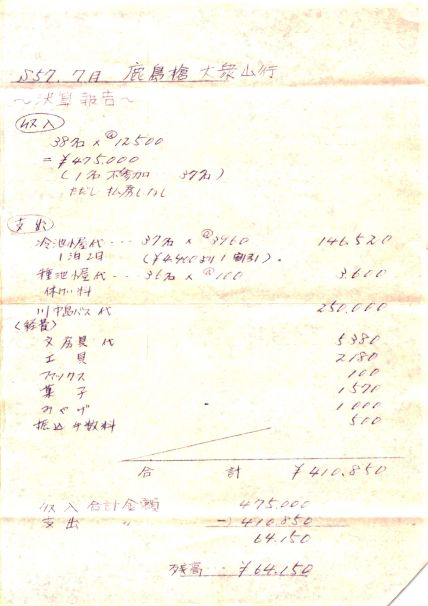 S57. 7月 鹿島槍 大衆山行
～決算報告～
収入
38名 × @12500
= ¥475.000
(1名 不参加… 37名)
ただし 払戻しなし
支出
冷池小屋代… 37名 × @3960 146.520
1泊2日 (¥4,400より 1割引)。
種池小屋代… 36名 × @100 3.600
休けい料
川中島バス代 250.000
(雑費)
文房具代 5380
工具 2180
100
菓子 1570
みやげ 1000
振込手数料 500
合計 ¥410.850
収入合計金額 475.000
支出 〃 -)410.850
64.150
残高… ¥64.150